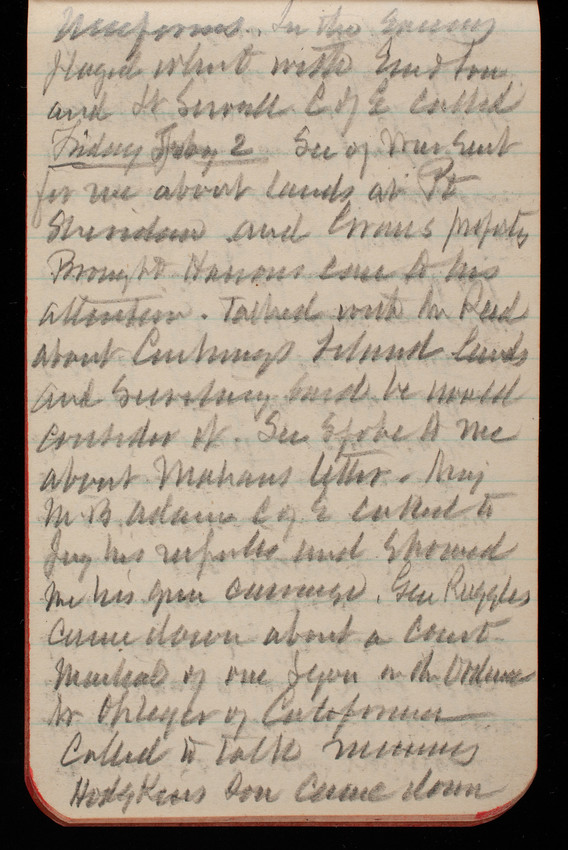 In the evening
played whist with
and Lt Sewall C of E called
Friday Feby 2 Sec of War sent
for me about lands at Ft
Sheridan and Evans property
Brought Harrous case to his
attention. Talked with Mr Reed
about Cushings Island lands
and Secretary said he would
consider it. Sec spoke to me
about Mahans letter. Maj
M B Adams C of E called to
his and showed
me his gun carriage. Gen Ruggles
came down about a court
Martial of one on the Ordnance
Mr of California
Called to talk
Hodgkins son came down